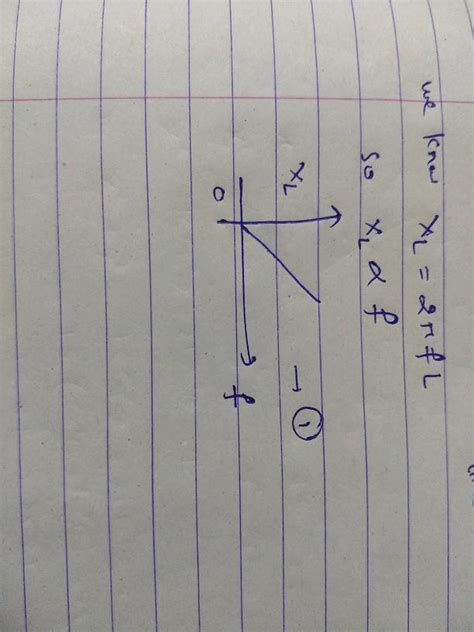 we know X_L = 2πfL
so X_L ∝ f
X_L
→ ①
0
f